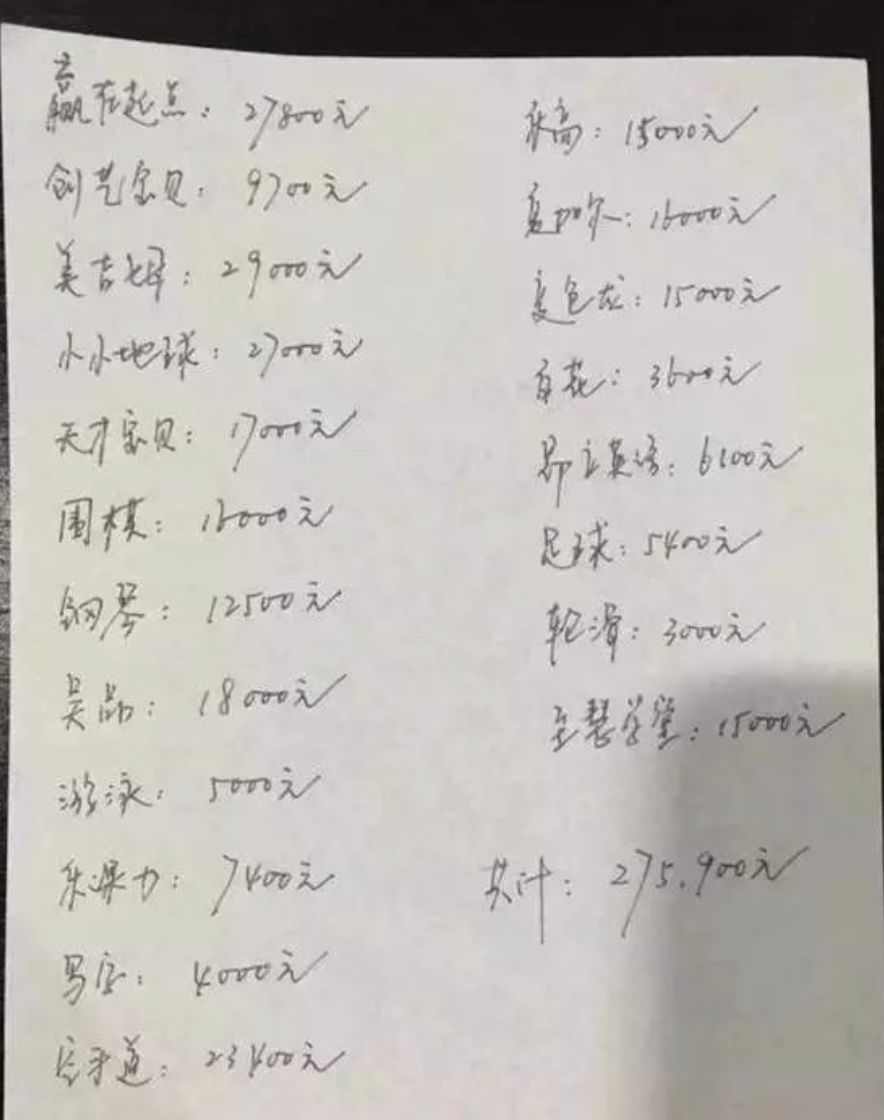 赢在起点：27800元
创艺宝贝：9700元
美吉姆：29000元
小小地球：27000元
天才宝贝：17000元
围棋：16000元
钢琴：12500元
昊品：18000元
游泳：5000元
乐瀑力：7400元
写字：4000元
空手道：23400元
乐高：15000元
夏加尔：16000元
变色龙：15000元
百花：3600元
昂立英语：6100元
足球：5400元
轮滑：3000元
至慧学堂：15000元
共计：275.900元